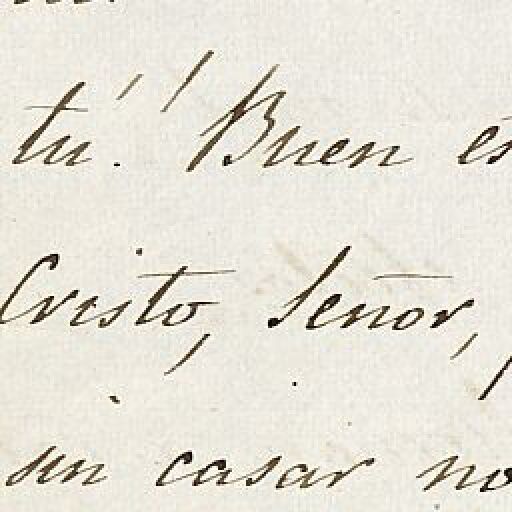 tú! ¡Buen es
Cristo, Señor,
sin casar no